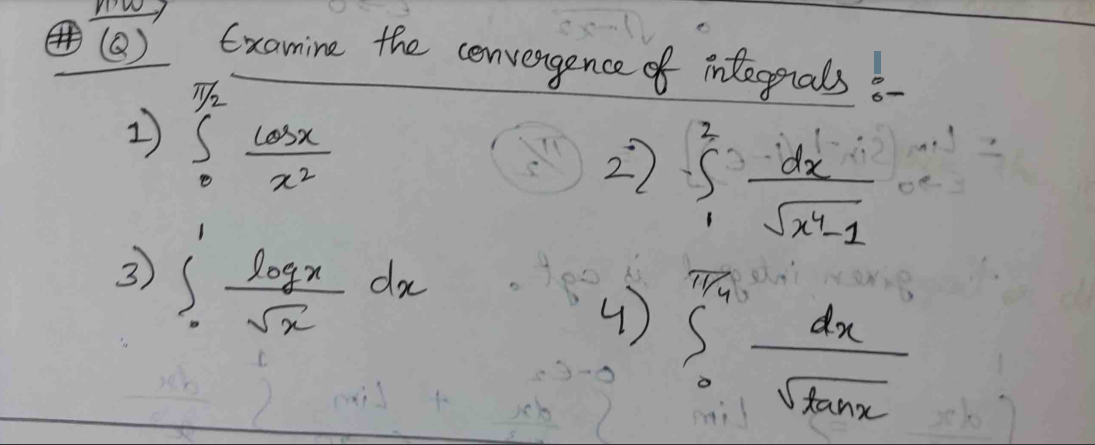 HW
# (Q) Examine the convergence of integrals :-
1) ∫₀^{π/2} cosx / x²
2) ∫₁² dx / √(x⁴-1)
3) ∫₀¹ logx / √x dx
4) ∫₀^{π/4} dx / √tanx